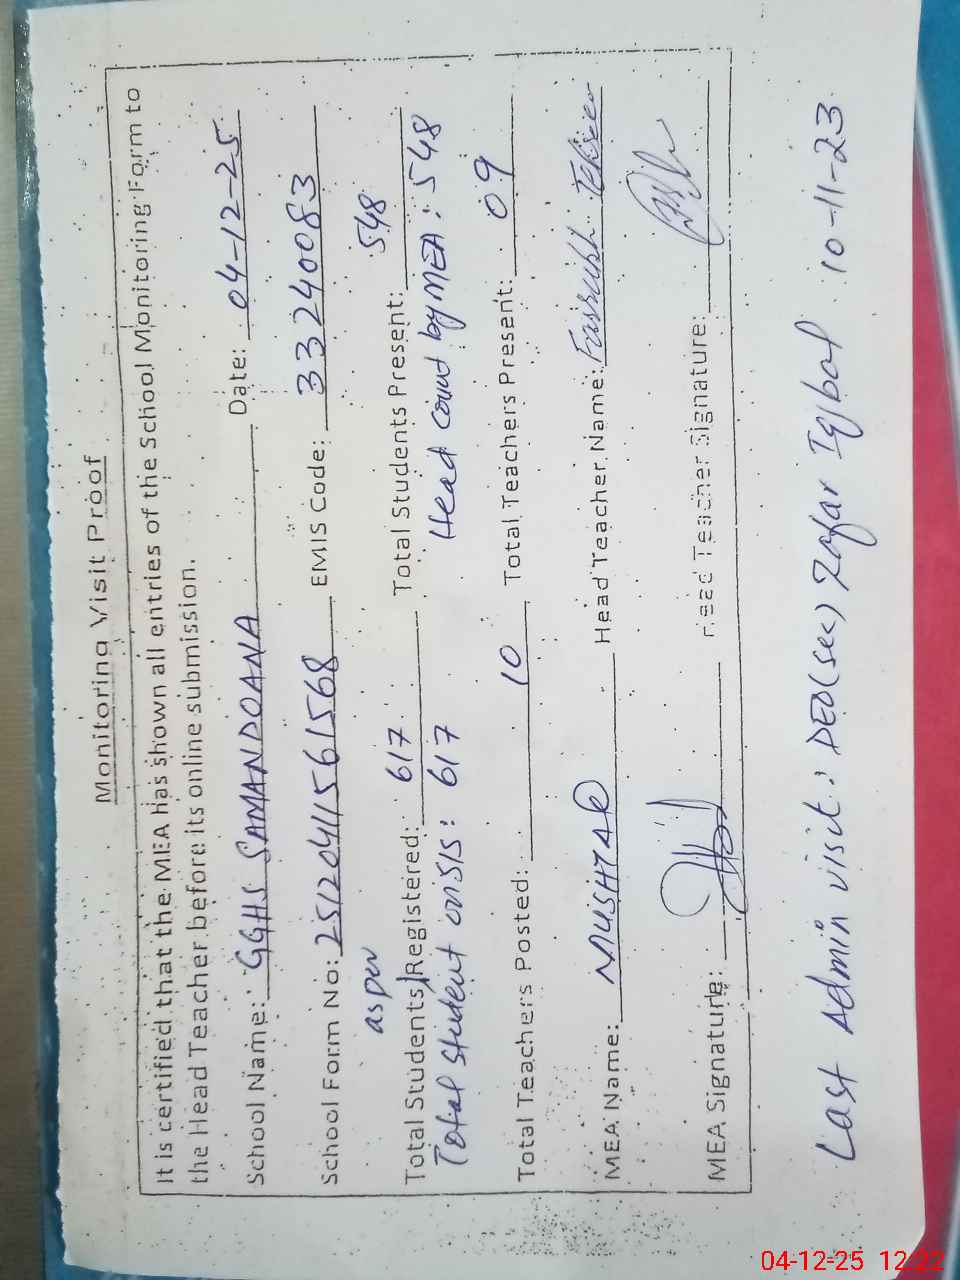 Monitoring Visit Proof
It is certified that the MEA has shown all entries of the School Monitoring Form to
the Head Teacher before its online submission.
School Name: GGHS SAMANDOANA Date: 04-12-25
School Form No: 25120411561568 EMIS Code: 33240083
as per 548
Total Students Registered: 617 Total Students Present:
Total Student on SIS: 617 Head Count by MEA: 548
Total Teachers Posted: 10 Total Teachers Present: 09
MEA Name: MUSHTAQ Head Teacher Name: Farrukh
MEA Signature: Head Teacher Signature:
Last Admin visit: DEO(sec) Zafar Iqbal 10-11-23
04-12-25 12:22